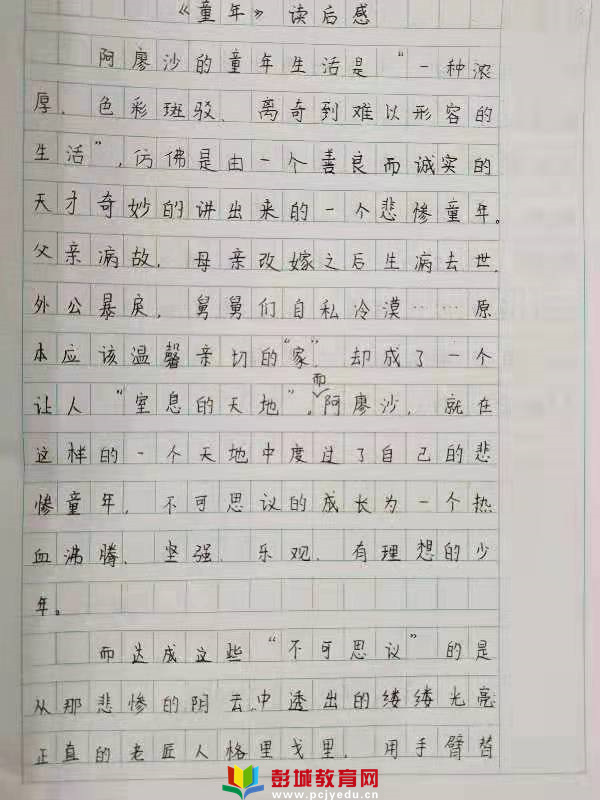 《童年》读后感
阿廖沙的童年生活是“一种浓
厚、色彩斑驳、离奇到难以形容的
生活”，仿佛是由一个善良而诚实的
天才奇妙的讲出来的一个悲惨童年。
父亲病故，母亲改嫁之后生病去世，
外公暴戾，舅舅们自私冷漠……原
本应该温馨亲切的“家”，却成了一个
让人“窒息的天地”。而阿廖沙，就在
这样的一个天地中度过了自己的悲
惨童年，不可思议的成长为一个热
血沸腾、坚强、乐观、有理想的少
年。
而达成这些“不可思议”的是
从那悲惨的阴云中透出的缕缕光亮
正直的老匠人格里戈里，用手臂替
彭城教育网
www.pcjyedu.cn